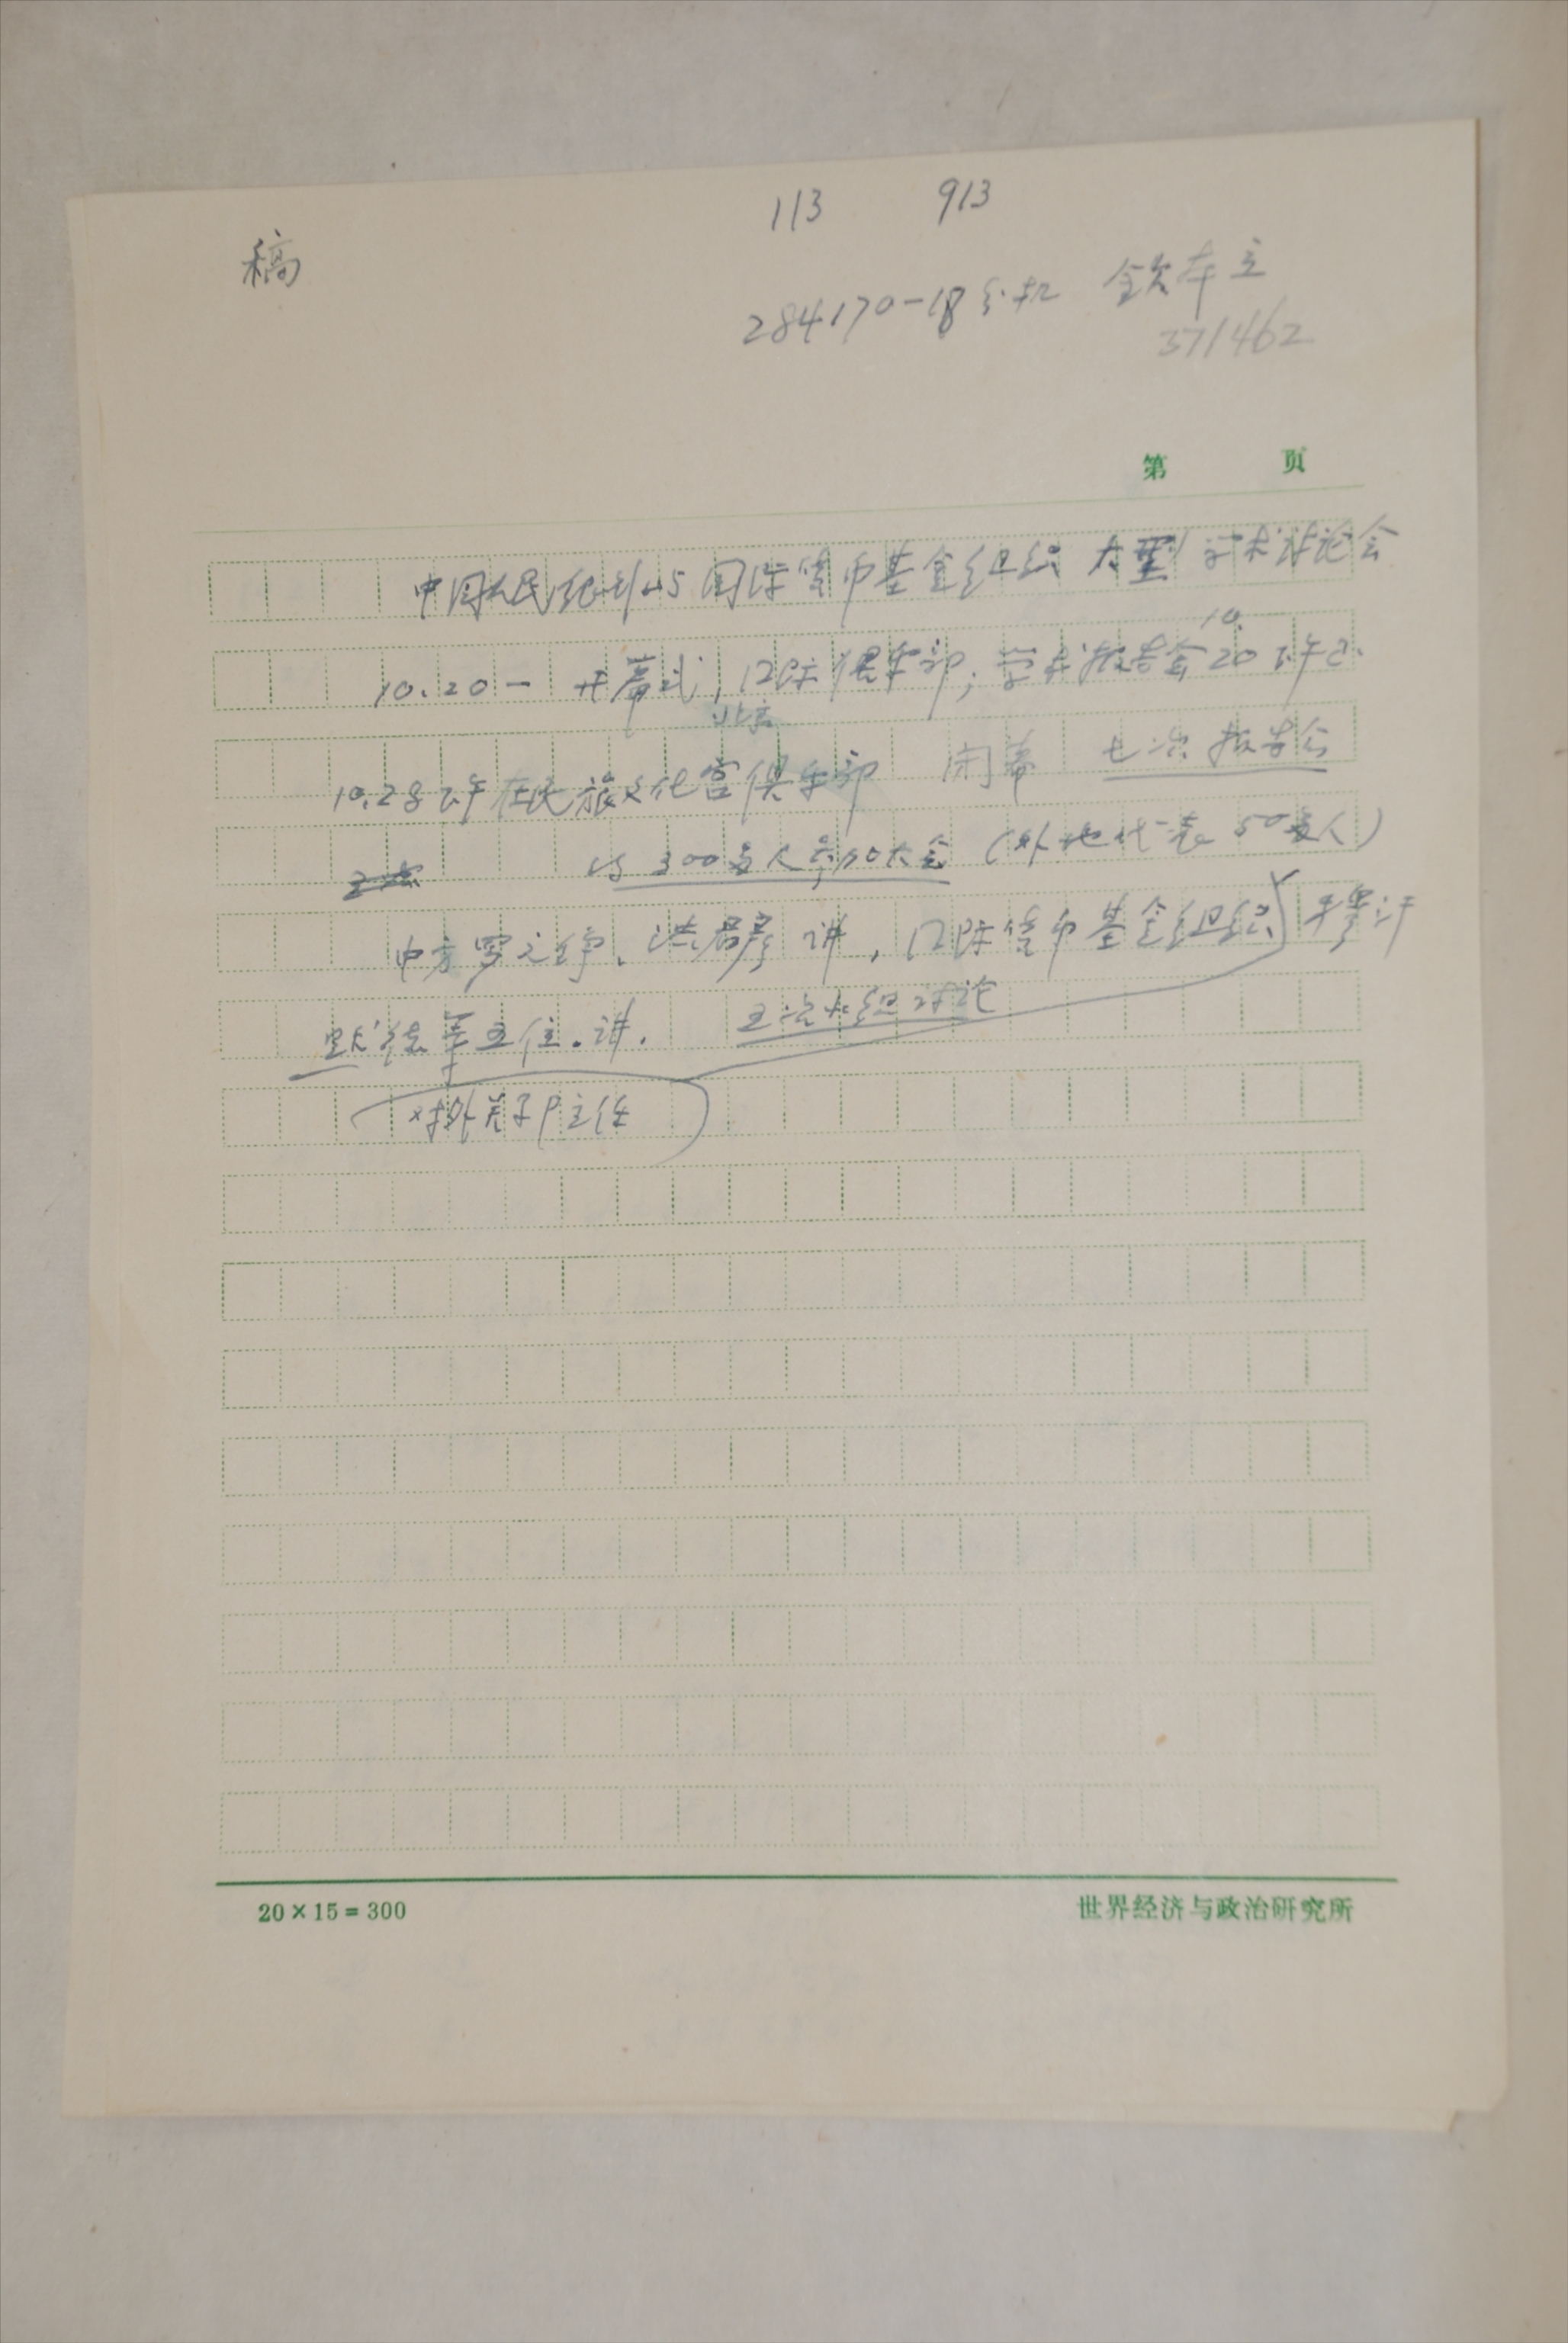 113 913
稿
284170-18分机
371462
第 页
中国人民银行与国际货币基金组织 大型学术讨论会
10.20一 开幕式,国际俱乐部;学术报告会 10. 20下午已
北京
10.28下午在民族文化宫俱乐部 闭幕 七次报告会
约300多人参加大会(外地代表50多人)
中方罗元铮、洪君彦讲,国际货币基金组织
默德等五位.讲. 五次小组讨论
对外关系部主任
20×15=300 世界经济与政治研究所